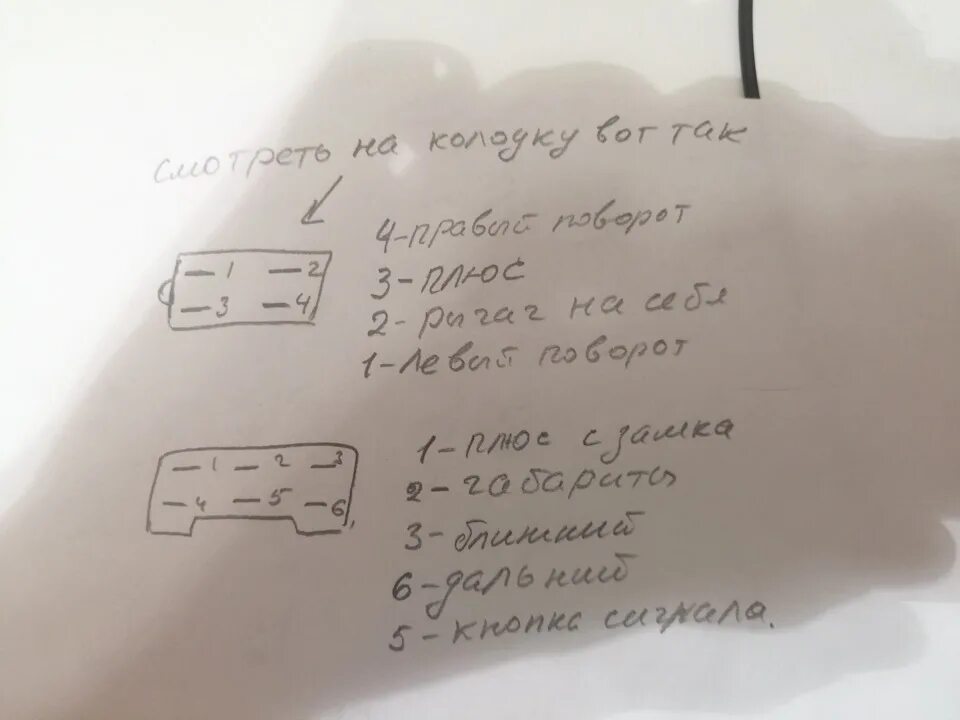 смотреть на колодку вот так
4-правый поворот
— 1 — 2
3-плюс
— 3 — 4
2-рычаг на себя
1-левый поворот
1-плюс с замка
— 1 — 2 — 3
2-габариты
— 4 — 5 — 6
3-ближний
6-дальний
5-кнопка сигнала.